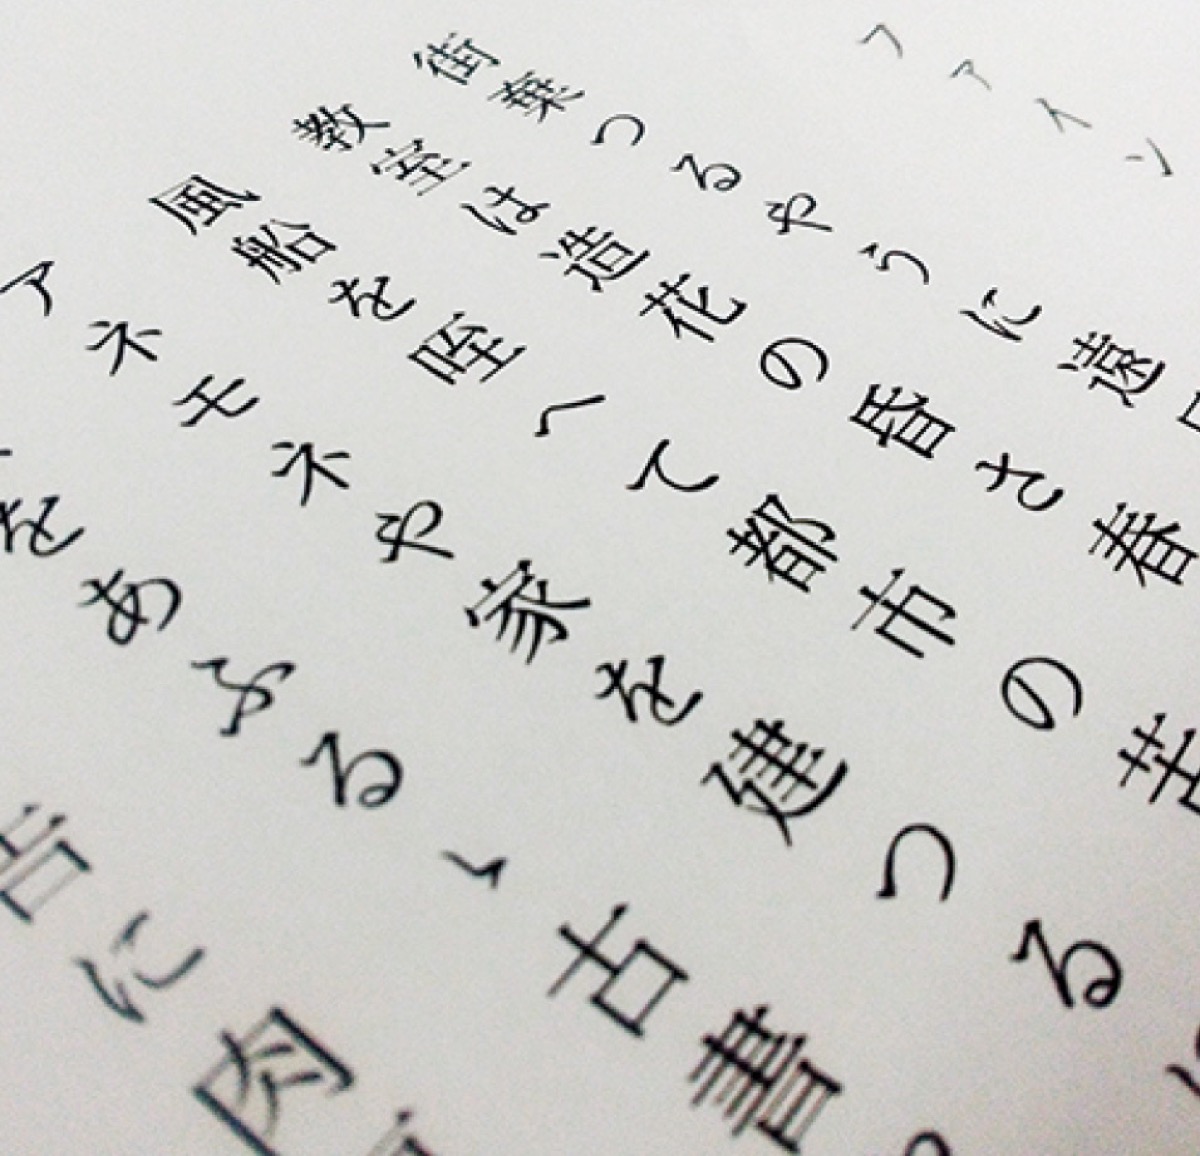 ファイン
街棄つるやうに遠
教室は造花の昏さ春
風船を咥へて都市の苦
アネモネや家を建つる
をあふるゝ古書
に肉